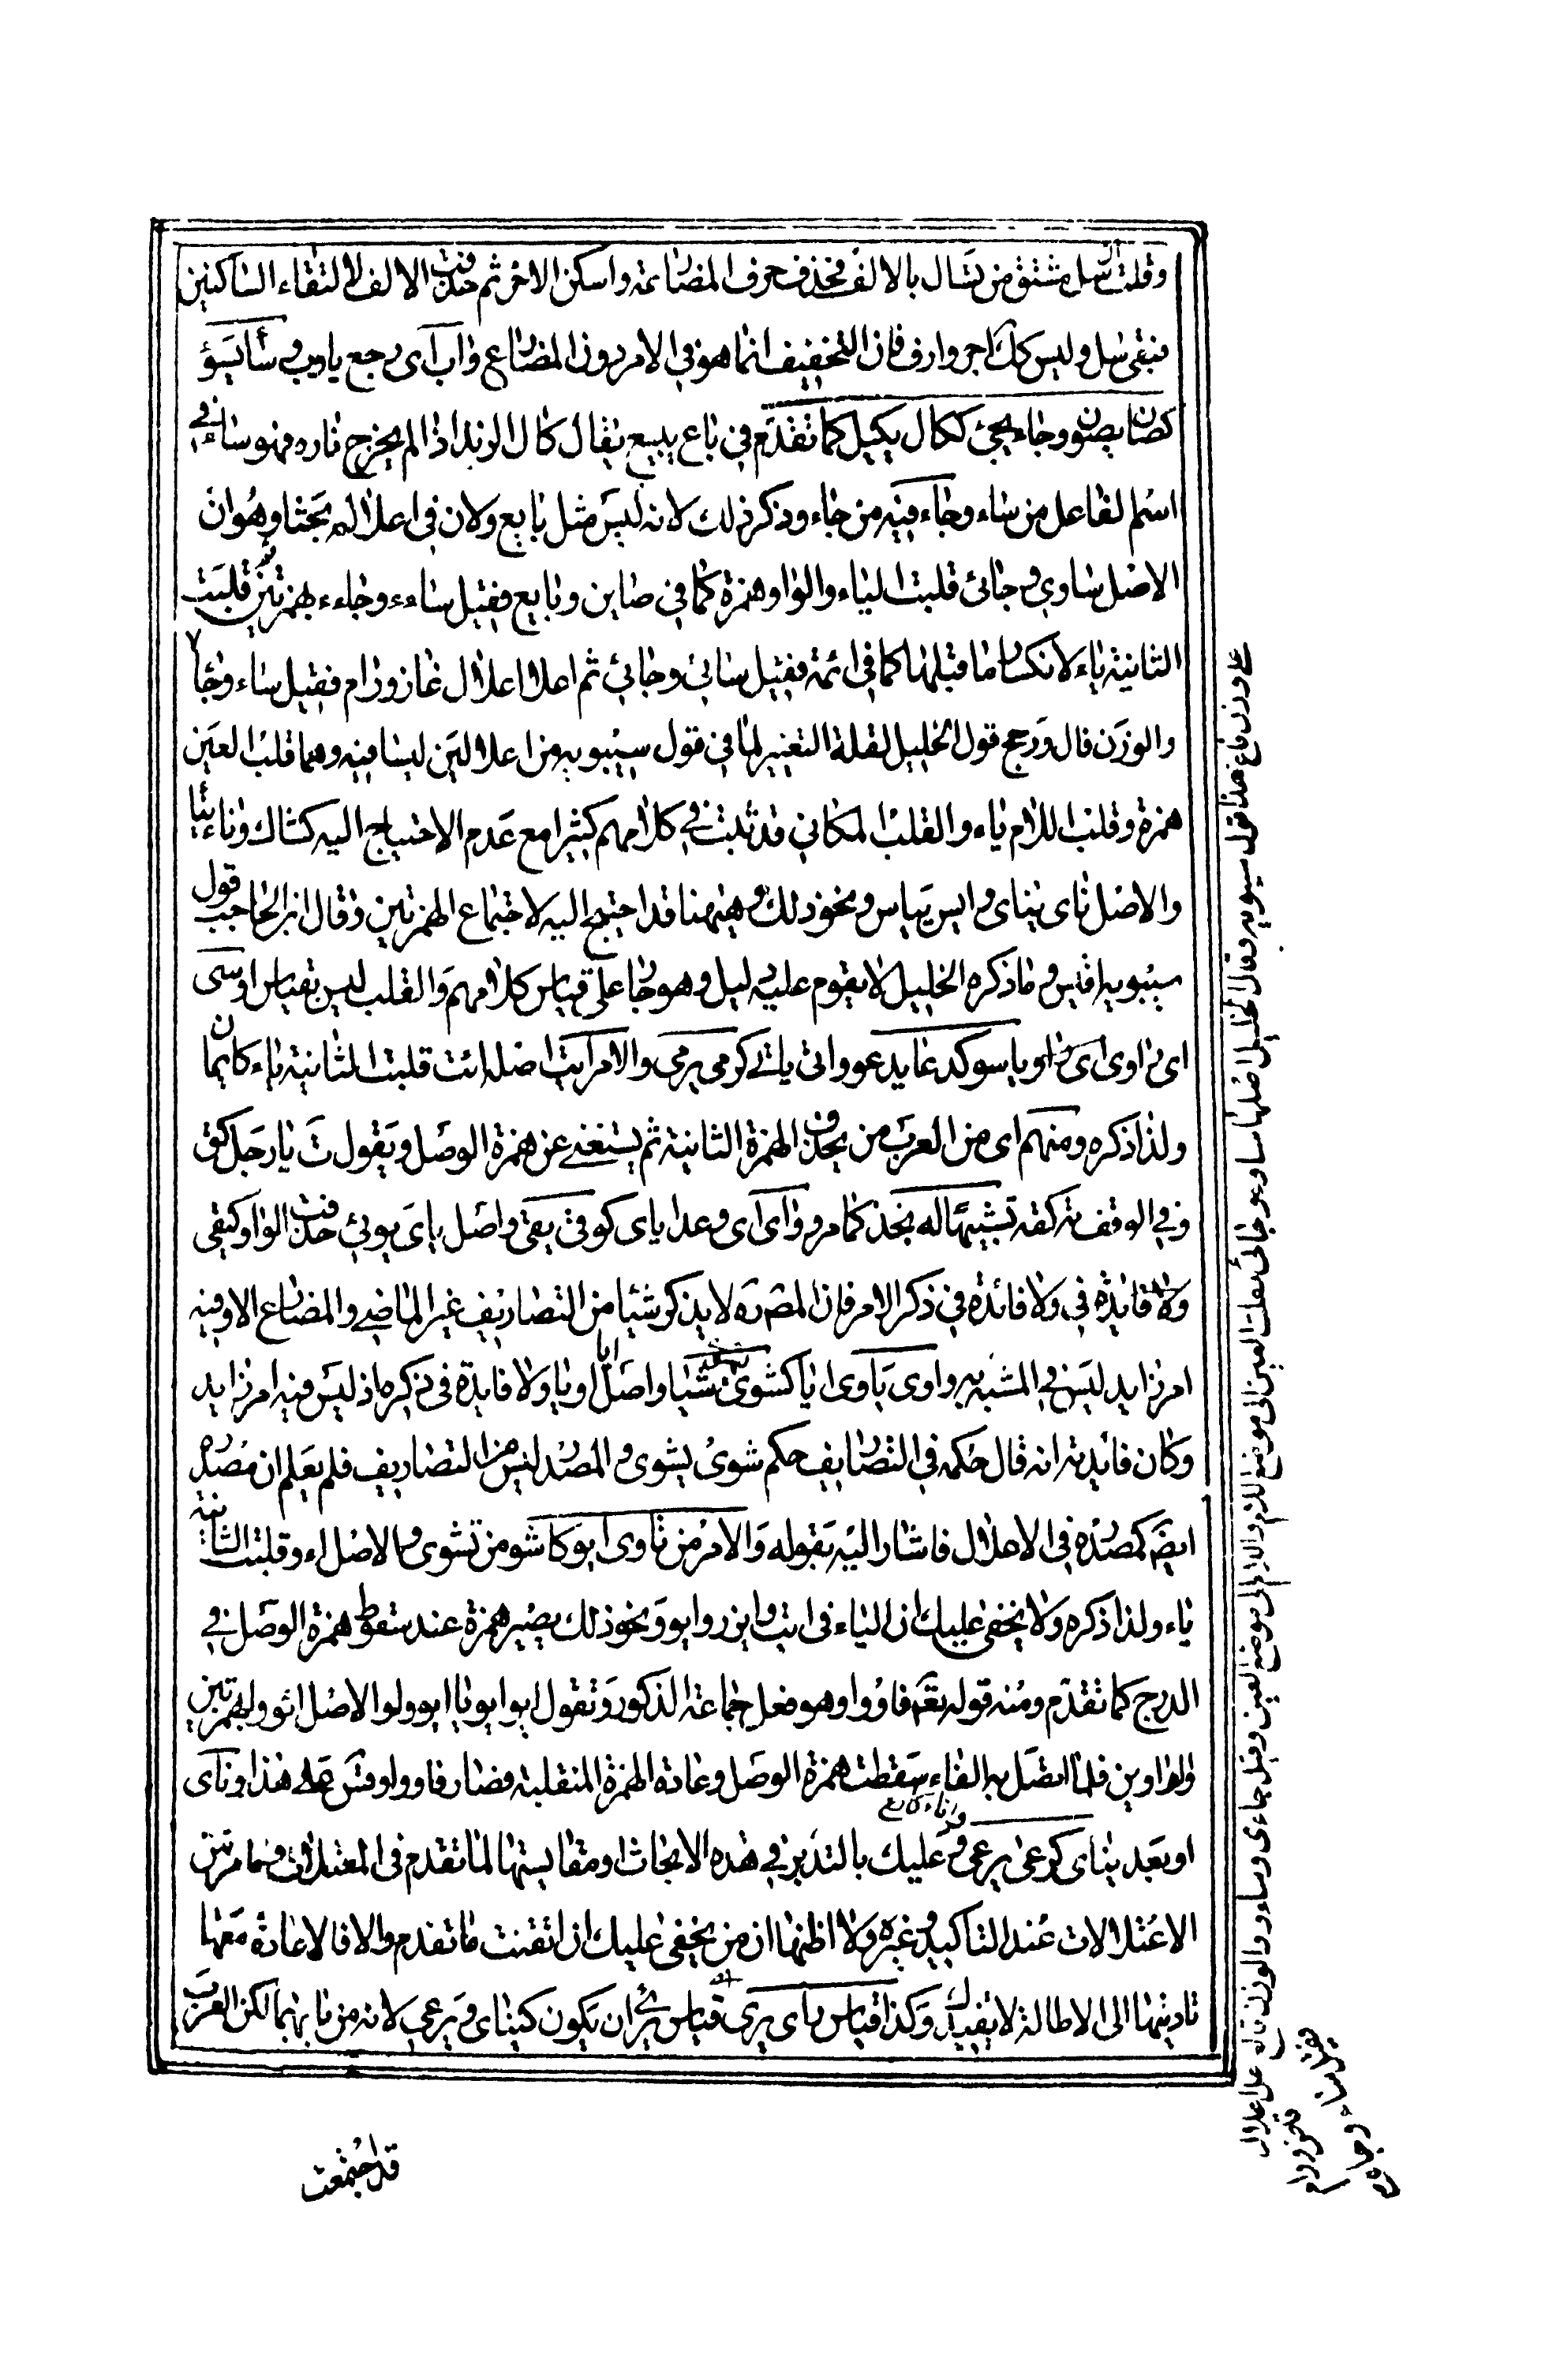 وقلت سل مشتق من تسال بالالف فحذف حرف المضارعة واسكن الاخر ثم حذفت الالف لالتقاء الساكنين
فبقى سل وليس كك اجر وارف فان التخفيف انما هو في الامر دون المضارع واب اى رجع ياوب وساء يسؤ
كصان يصون وجاء يجئ ككال يكيل كما تقدم في باع يبيع يقال كال الزند اذا لم يخرج ناره فهو ساء في
اسم الفاعل من ساء وجاء فيه من جاء وذكر ذلك لانه ليس مثل بايع ولان في اعلاله بحثا وهو ان
الاصل ساوء وجائ قلبت الياء والواو همزة كما في صاين وبايع فقيل ساءء وجاءء بهمزتين ثم قلبت
الثانية ياء لانكسار ما قبلها كما في ائمة فقيل سائي وجائي ثم اعلا اعلال غاز ورام فقيل ساء وجاء
والوزن فال ورجح قول الخليل لقلة التغيير لما في قول سيبويه من اعلالين ليسا فيه وهما قلب العين
همزة وقلب اللام ياء والقلب المكاني قد ثبت في كلامهم كثيرا مع عدم الاحتياج اليه كشاك وناء يناء
والاصل ناى يناى وايس يياس ونحو ذلك وههنا قد احتيج اليه لاجتماع الهمزتين وقال ابن الحاجب قول
سيبويه اقيس وما ذكره الخليل لا يقوم عليه دليل وهو جار على قياس كلامهم والقلب ليس بقياس اوسى
ياسو كدعا يدعو واتى ياتي كرمى يرمى والامر ايت اصله ائت قلبت الثانية ياء كايمان
ولذا ذكره ومنهم اى من العرب من يحذف الهمزة الثانية ثم يستغنى عن همزة الوصل ويقول ت يا رجل كق
وفي الوقف ته كقه تشبيها له بخذ كما مر وواى اى وعد ياى كوقى يقى واصل ياى يوئي حذفت الواو كيقى
ولا فايدة في ذكر الامر فان المص ره لا يذكر شيئا من التصاريف غير الماضي والمضارع الا وفيه
امر زايد ليس في المشبه به واوى ياوى ايا كشوى يشوى شيا واصل ايا اويا ولا فايدة في ذكره اذ ليس فيه امر زايد
وكان فائدته انه قال حكمه في التصاريف حكم شوى يشوى والمصدر ليس من التصاريف فلم يعلم ان مصدره
ايضا كمصدره في الاعلال فاشار اليه بقوله والامر من تاوى ايو كاشو من تشوى والاصل اءو قلبت الثانية
ياء ولذا ذكره ولا يخفى عليك ان الياء في ايت وايزر وايو ونحو ذلك يصير همزة عند سقوط همزة الوصل في
الدرج كما تقدم ومنه قوله تعالى فاووا وهو فعل جماعة الذكور وتقول ايو ايويا ايووا والاصل ائووا بهمزتين
وواوين فلما اتصل به الفاء سقطت همزة الوصل وعادة الهمزة المنقلبة فصار فاووا وقس على هذا وناى
اى بعد يناى كرعى يرعى وعليك بالتدبر في هذه الابحاث ومقايستها لما تقدم في المعتلات وما مر من
الاعتلالات عند التاكيد وغيره ولا اظنها ان من يخفى عليك ان اتقنت ما تقدم والا فالاعادة معها
تاديتها الى الاطالة لا يفيدك وكذا قياس راى يرى اى قياس يرى ان يكون كيناى ويرعى لانه من بابهما لكن العرب
قد اجتمعت
على وزن فاع هذا قول سيبويه وقال الخليل اصلهما ساوء وجائ نقلت العين الى موضع اللام واللام الى موضع العين وقيل جاءى وساءو والوزن فالع ثم اعلا اعلال
غاز ورام
فقيل ساء وجاء